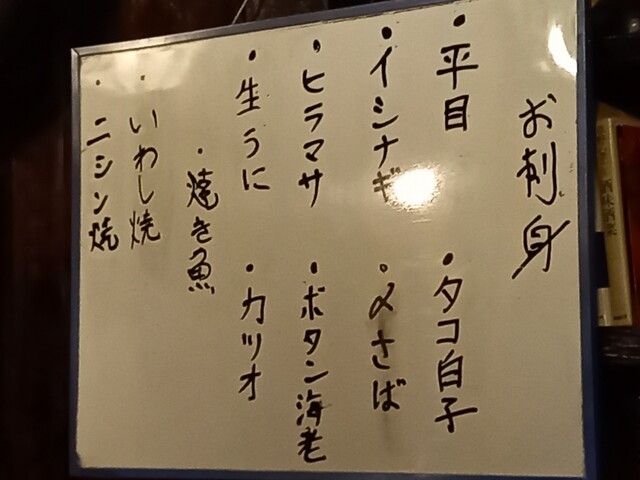 お刺身
・平目
・タコ白子
・イシナギ
・〆さば
・ヒラマサ
・ボタン海老
・生うに
・カツオ
・焼き魚
・いわし焼
・ニシン焼